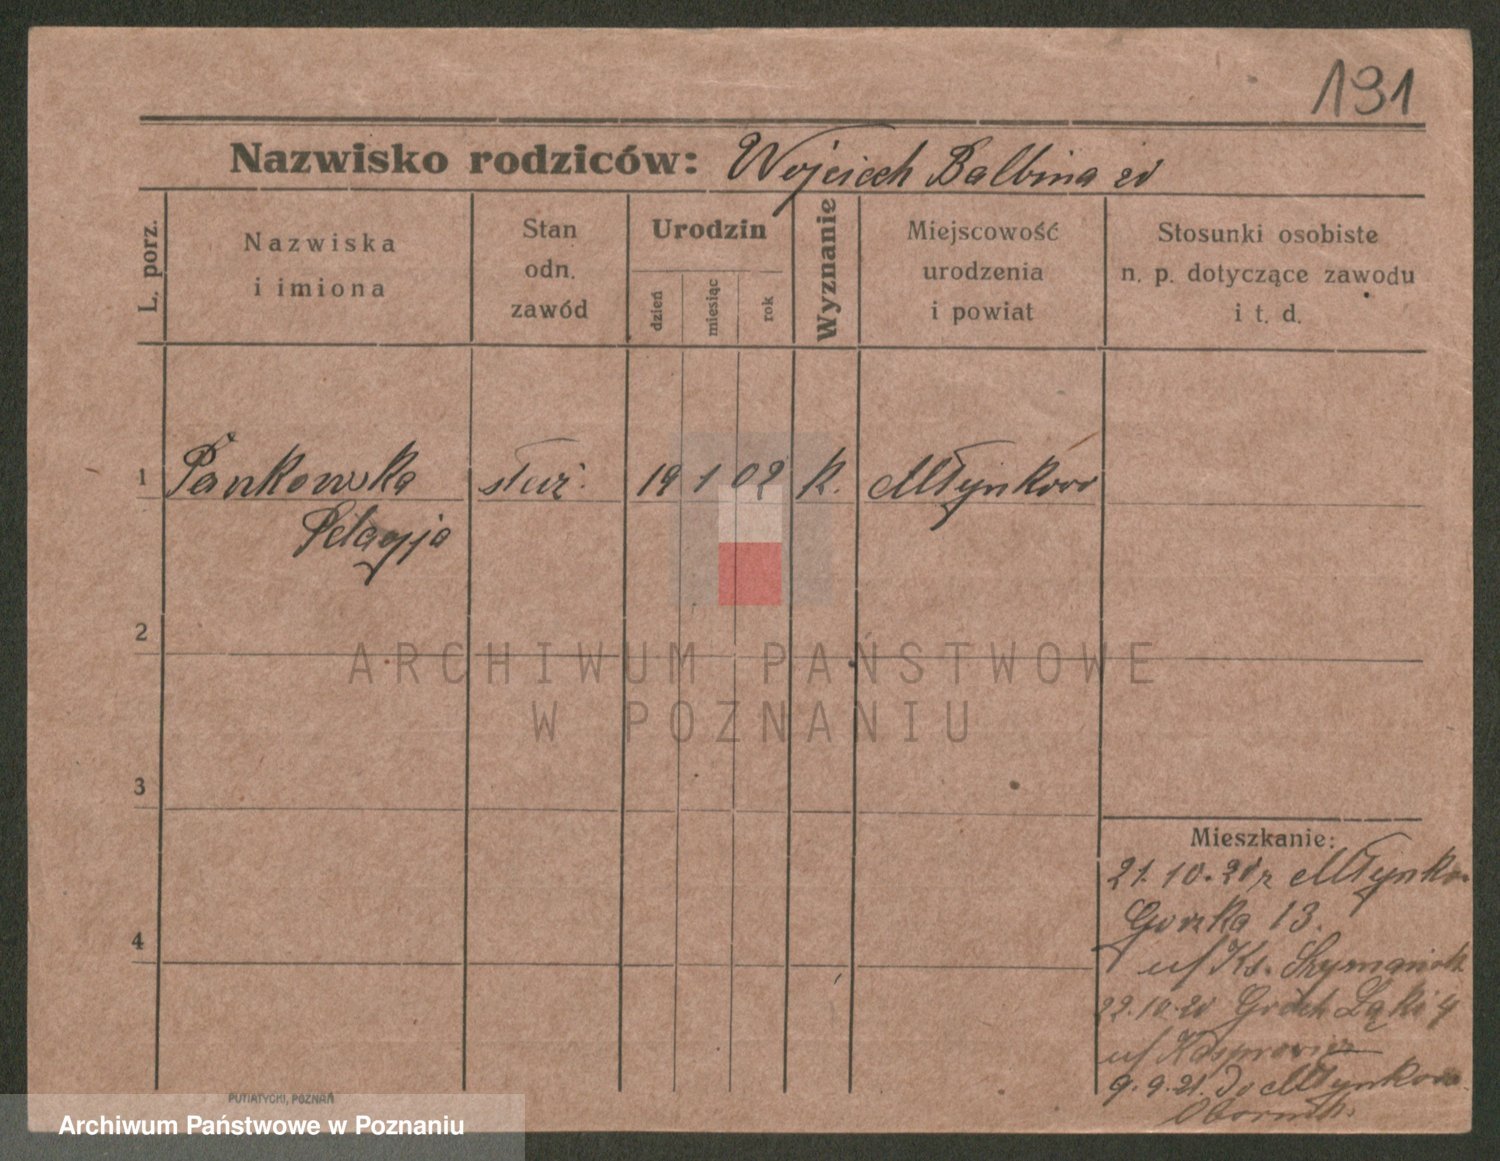 191
Nazwisko rodziców: Wojciech Balbina
L. porz.
Nazwiska
i imiona
Stan
odn.
zawód
Urodzin
dzień
miesiąc
rok
Wyznanie
Miejscowość
urodzenia
i powiat
Stosunki osobiste
n. p. dotyczące zawodu
i t. d.
1 Pankowska służ. 19 1 02 K. Młynkowo
Pelagja
2
ARCHIWUM PAŃSTWOWE
W POZNANIU
3
Mieszkanie:
21.10.20 z Młynko.
13.
4
u/ Ks.
22.10.20 Groch Łąki 4
u/ Kasprowicz
9.9.21. do Młynkowo
Obornik.
PUTIATYCKI, POZNAŃ
Archiwum Państwowe w Poznaniu